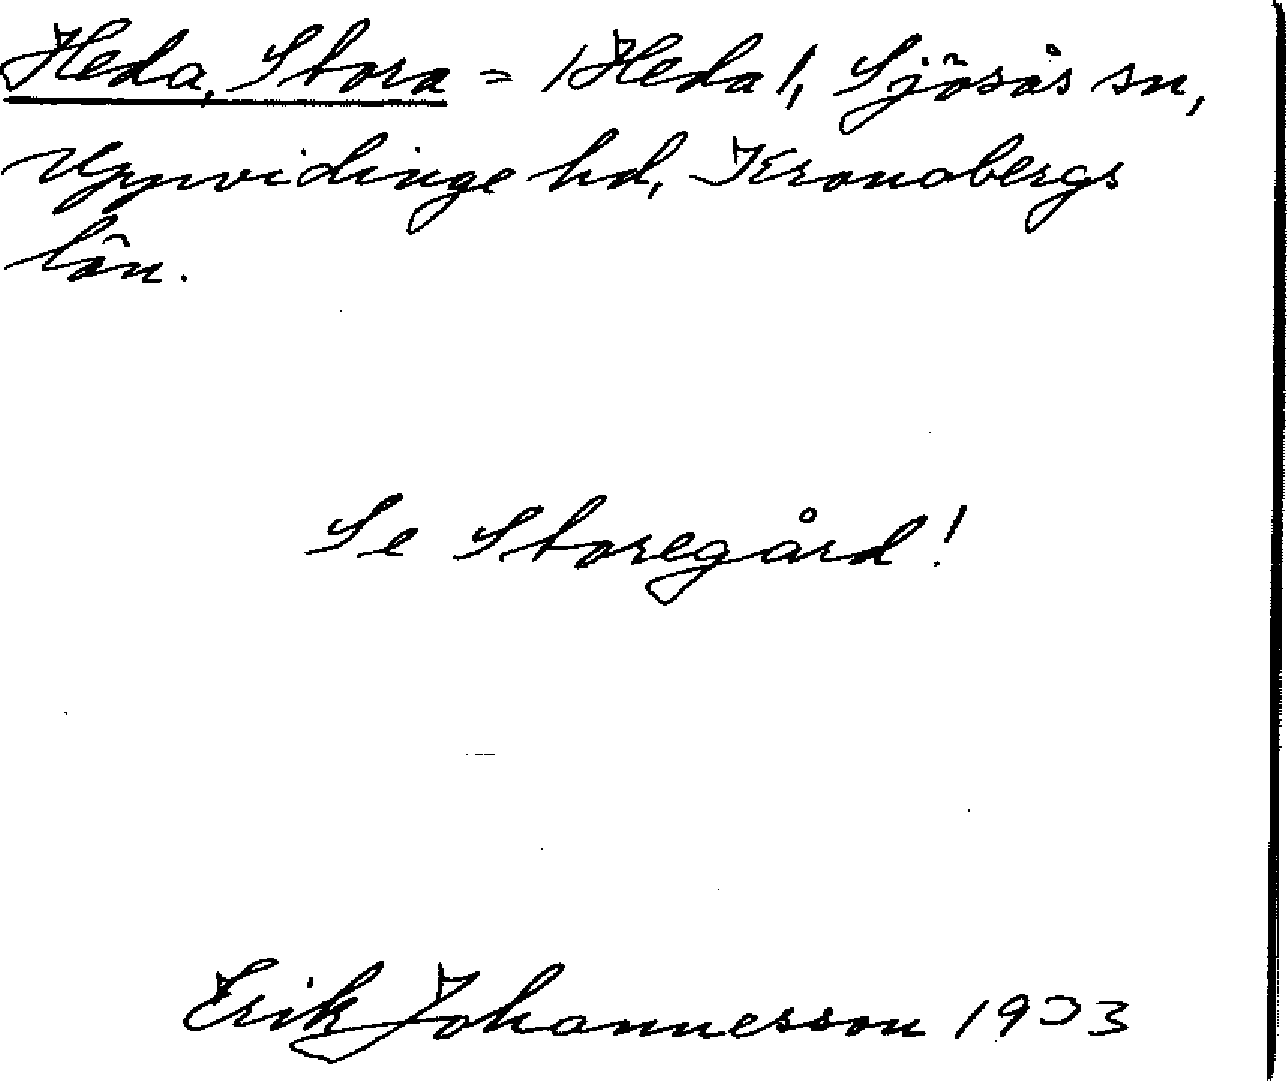 Heda, Stora = /Heda/, Sjösås sn,
Uppvidinge hd, Kronobergs
län.
Se Storegård!
Erik Johannesson 1933